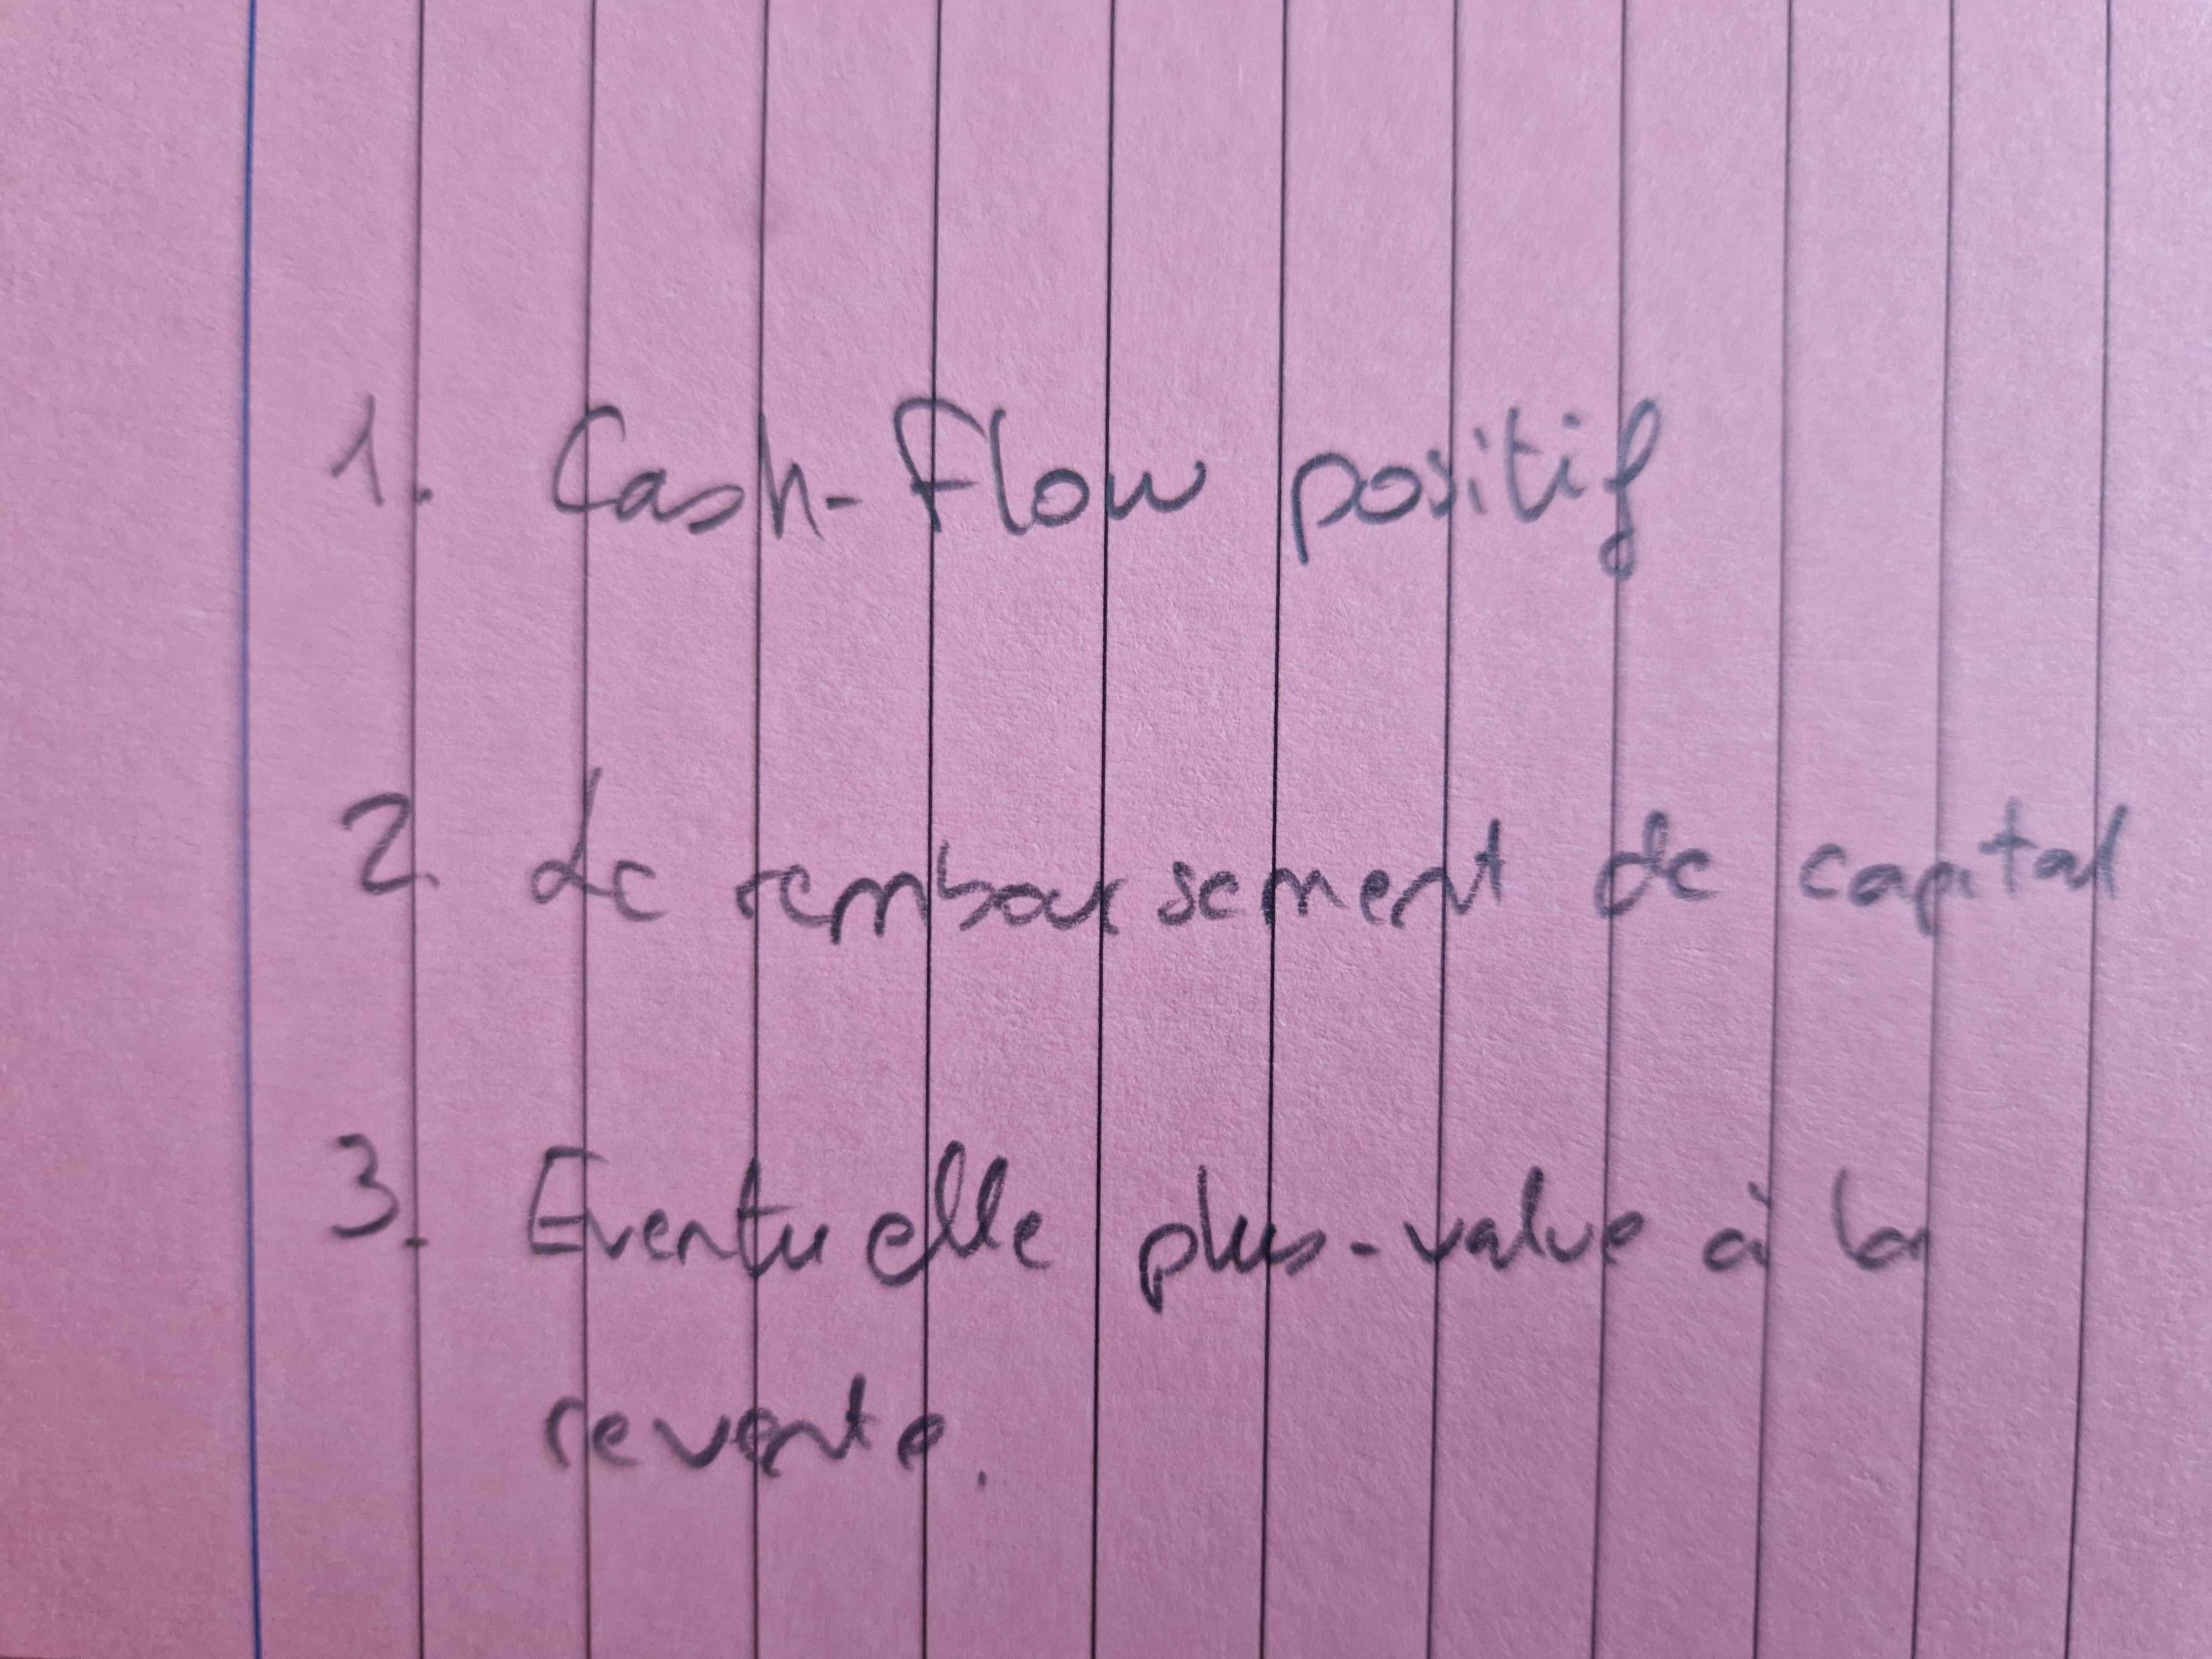 1. Cash-Flow positif
2. Le remboursement de capital
3. Eventuelle plus-value à la
revente.